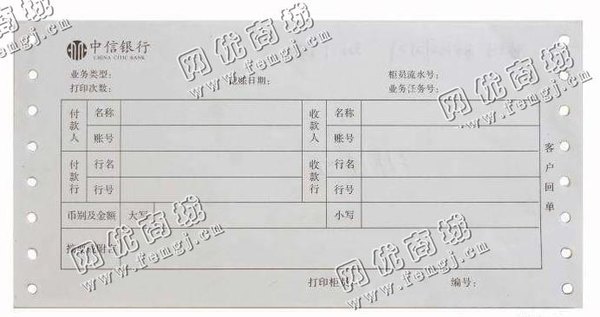 中信银行
CHINA CITIC BANK
业务类型: 记账日期: 柜员流水号:
打印次数: 业务任务号:
付款人 名称 收款人
账号 账号
付款行 行名 收款行 行名
行号 行号
币别及金额 大写 小写
客户回单
打印柜员: 编号:
网优商城
www.fengj.cn
网优商城
www.fengj.cn
网优商城
www.fengj.cn
网优商城
www.fengj.cn
网优商城
www.fengj.cn